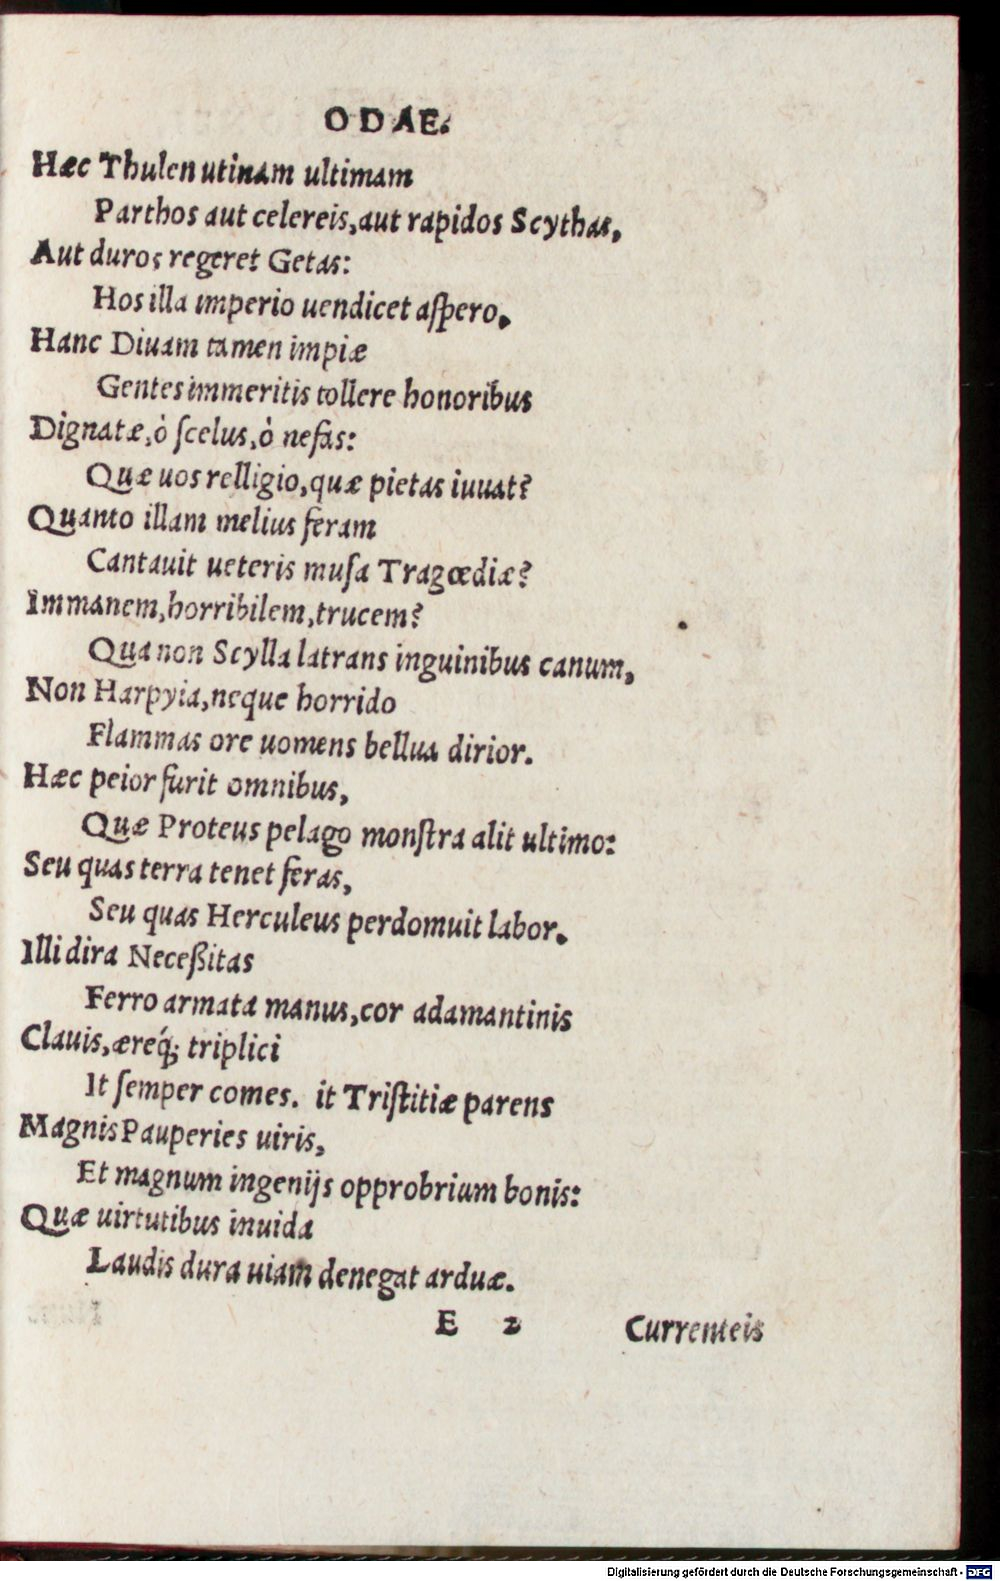 ODAE.
Hæc Thulen utinam ultimam
Parthos aut celereis, aut rapidos Scythas,
Aut duros regeret Getas:
Hos illa imperio uendicet aſpero.
Hanc Diuam tamen impiæ
Gentes immeritis tollere honoribus
Dignatæ, ò ſcelus, ò nefas:
Quæ uos relligio, quæ pietas iuuat?
Quanto illam melius feram
Cantauit ueteris muſa Tragœdiæ?
Immanem, horribilem, trucem?
Qua non Scylla latrans inguinibus canum,
Non Harpyia, neque horrido
Flammas ore uomens bellua dirior.
Hæc peior furit omnibus,
Quæ Proteus pelago monſtra alit ultimo:
Seu quas terra tenet feras,
Seu quas Herculeus perdomuit labor.
Illi dira Neceßitas
Ferro armata manus, cor adamantinis
Clauis, æreq́; triplici
It ſemper comes. it Triſtitiæ parens
Magnis Pauperies uiris,
Et magnum ingenijs opprobrium bonis:
Quæ uirtutibus inuida
Laudis dura uiam denegat arduæ.
E 2 Currenteis
Digitalisierung gefördert durch die Deutsche Forschungsgemeinschaft - DFG